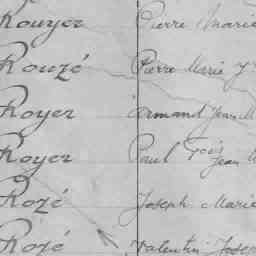 Rouyer Pierre Marie
Rouzé Pierre Marie
Royer Armand Jean M
Royer Paul Jean
Rozé Joseph Marie
Rozé Valentin Joseph